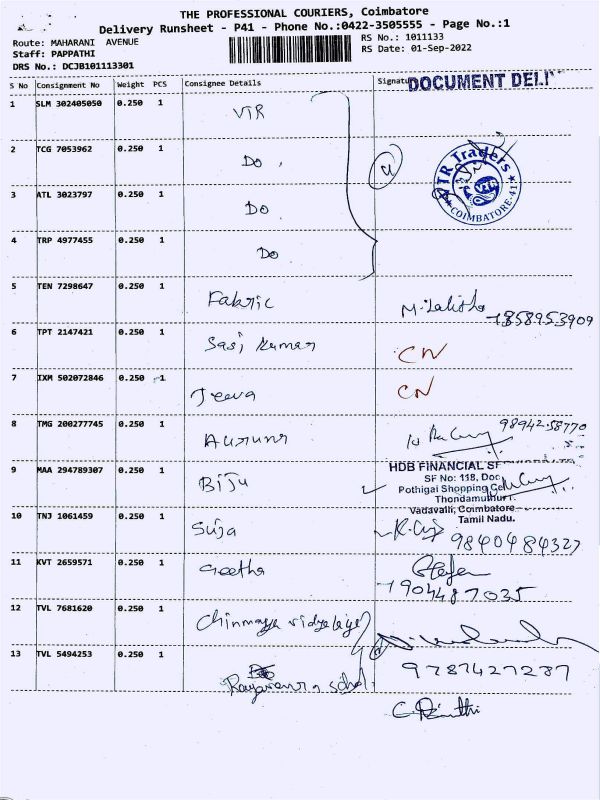 THE PROFESSIONAL COURIERS, Coimbatore
Delivery Runsheet - P41 - Phone No.:0422-3505555 - Page No.:1
Route: MAHARANI AVENUE
RS No.: 1011133
Staff: PAPPATHI
RS Date: 01-Sep-2022
DRS No.: DCJB101113301
S No Consignment No Weight PCS Consignee Details Signature
DOCUMENT DELI
1 SLM 302405050 0.250 1 VTR
2 TCG 7053962 0.250 1 Do
VTR Traders
COIMBATORE-41
3 ATL 3023797 0.250 1 Do
4 TRP 4977455 0.250 1 Do
5 TEN 7298647 0.250 1 Fabric M. Lalitha
858953909
6 TPT 2147421 0.250 1 Sasi Kumar CN
7 IXM 502072846 0.250 1 Jeeva CN
8 TMG 200277745 0.250 1
98942 58770
9 MAA 294789307 0.250 1 Biju
HDB FINANCIAL
SF No: 118,
Pothigai Shopping
Thondamuthur
Vadavalli, Coimbatore
Tamil Nadu.
10 TNJ 1061459 0.250 1 Suja
9840484327
11 KVT 2659571 0.250 1 Geetha
7904487035
12 TVL 7681620 0.250 1 Chinmaya
13 TVL 5494253 0.250 1
9787427287